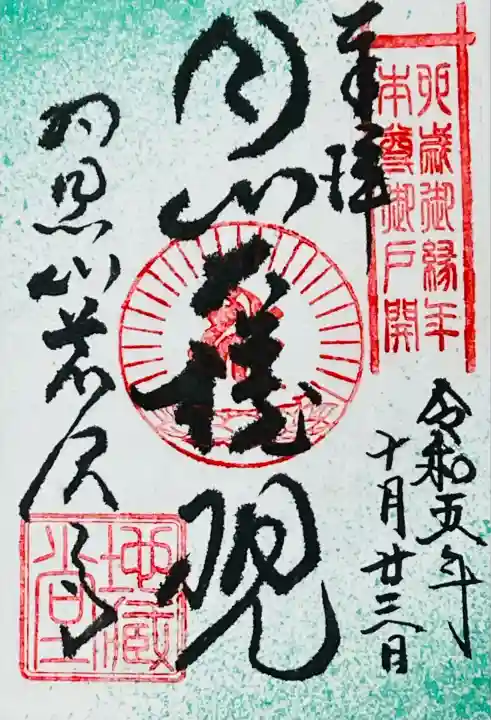 卯歳御縁年
本尊御戸開
令和五年
十月廿三日
奉拝
月山大権現
羽黒山荒沢寺
地蔵堂